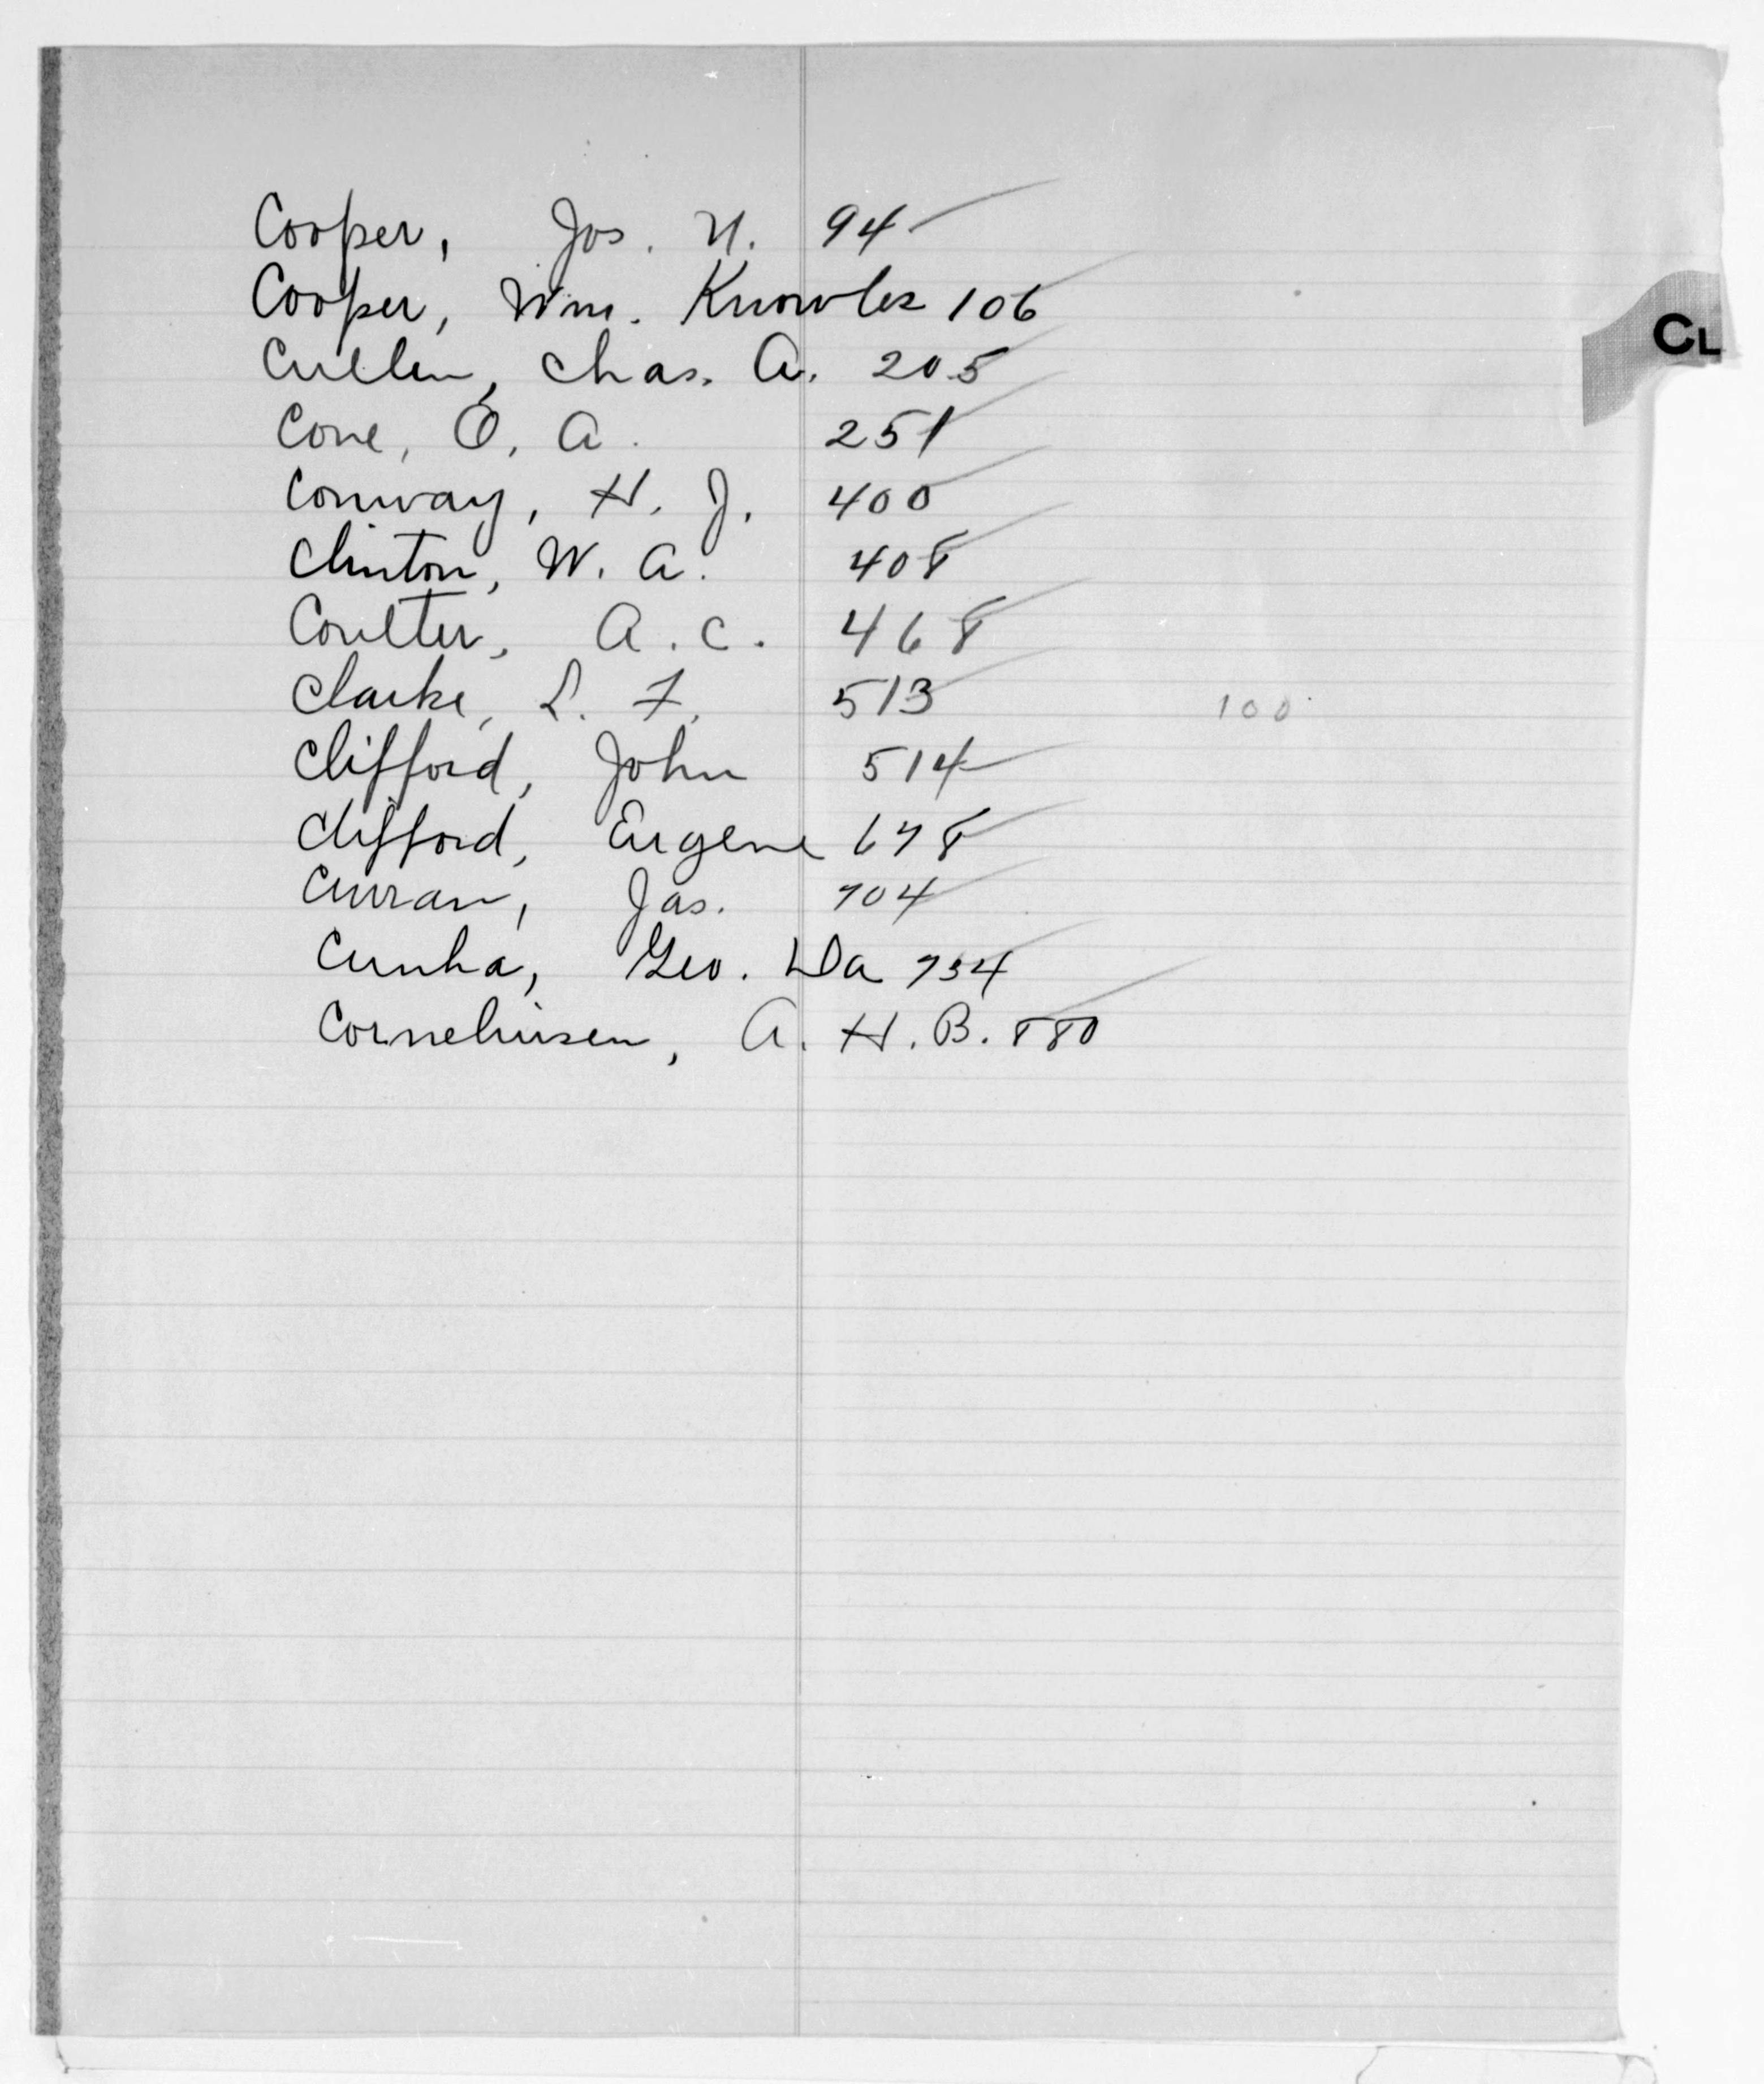 Cooper, Jos. N. 94
Cooper, Wm. Knowles 106
CL
Cullen, Chas. A. 205
Cone, O. A. 251
Conway, H. J. 400
Clinton, W. A. 408
Coulter, A. C. 468
Clarke, L. F. 513 100
Clifford, John 514
Clifford, Eugene 678
Curran, Jas. 704
Cunha, Geo. Da 734
Corneliusen, A. H. B. 880